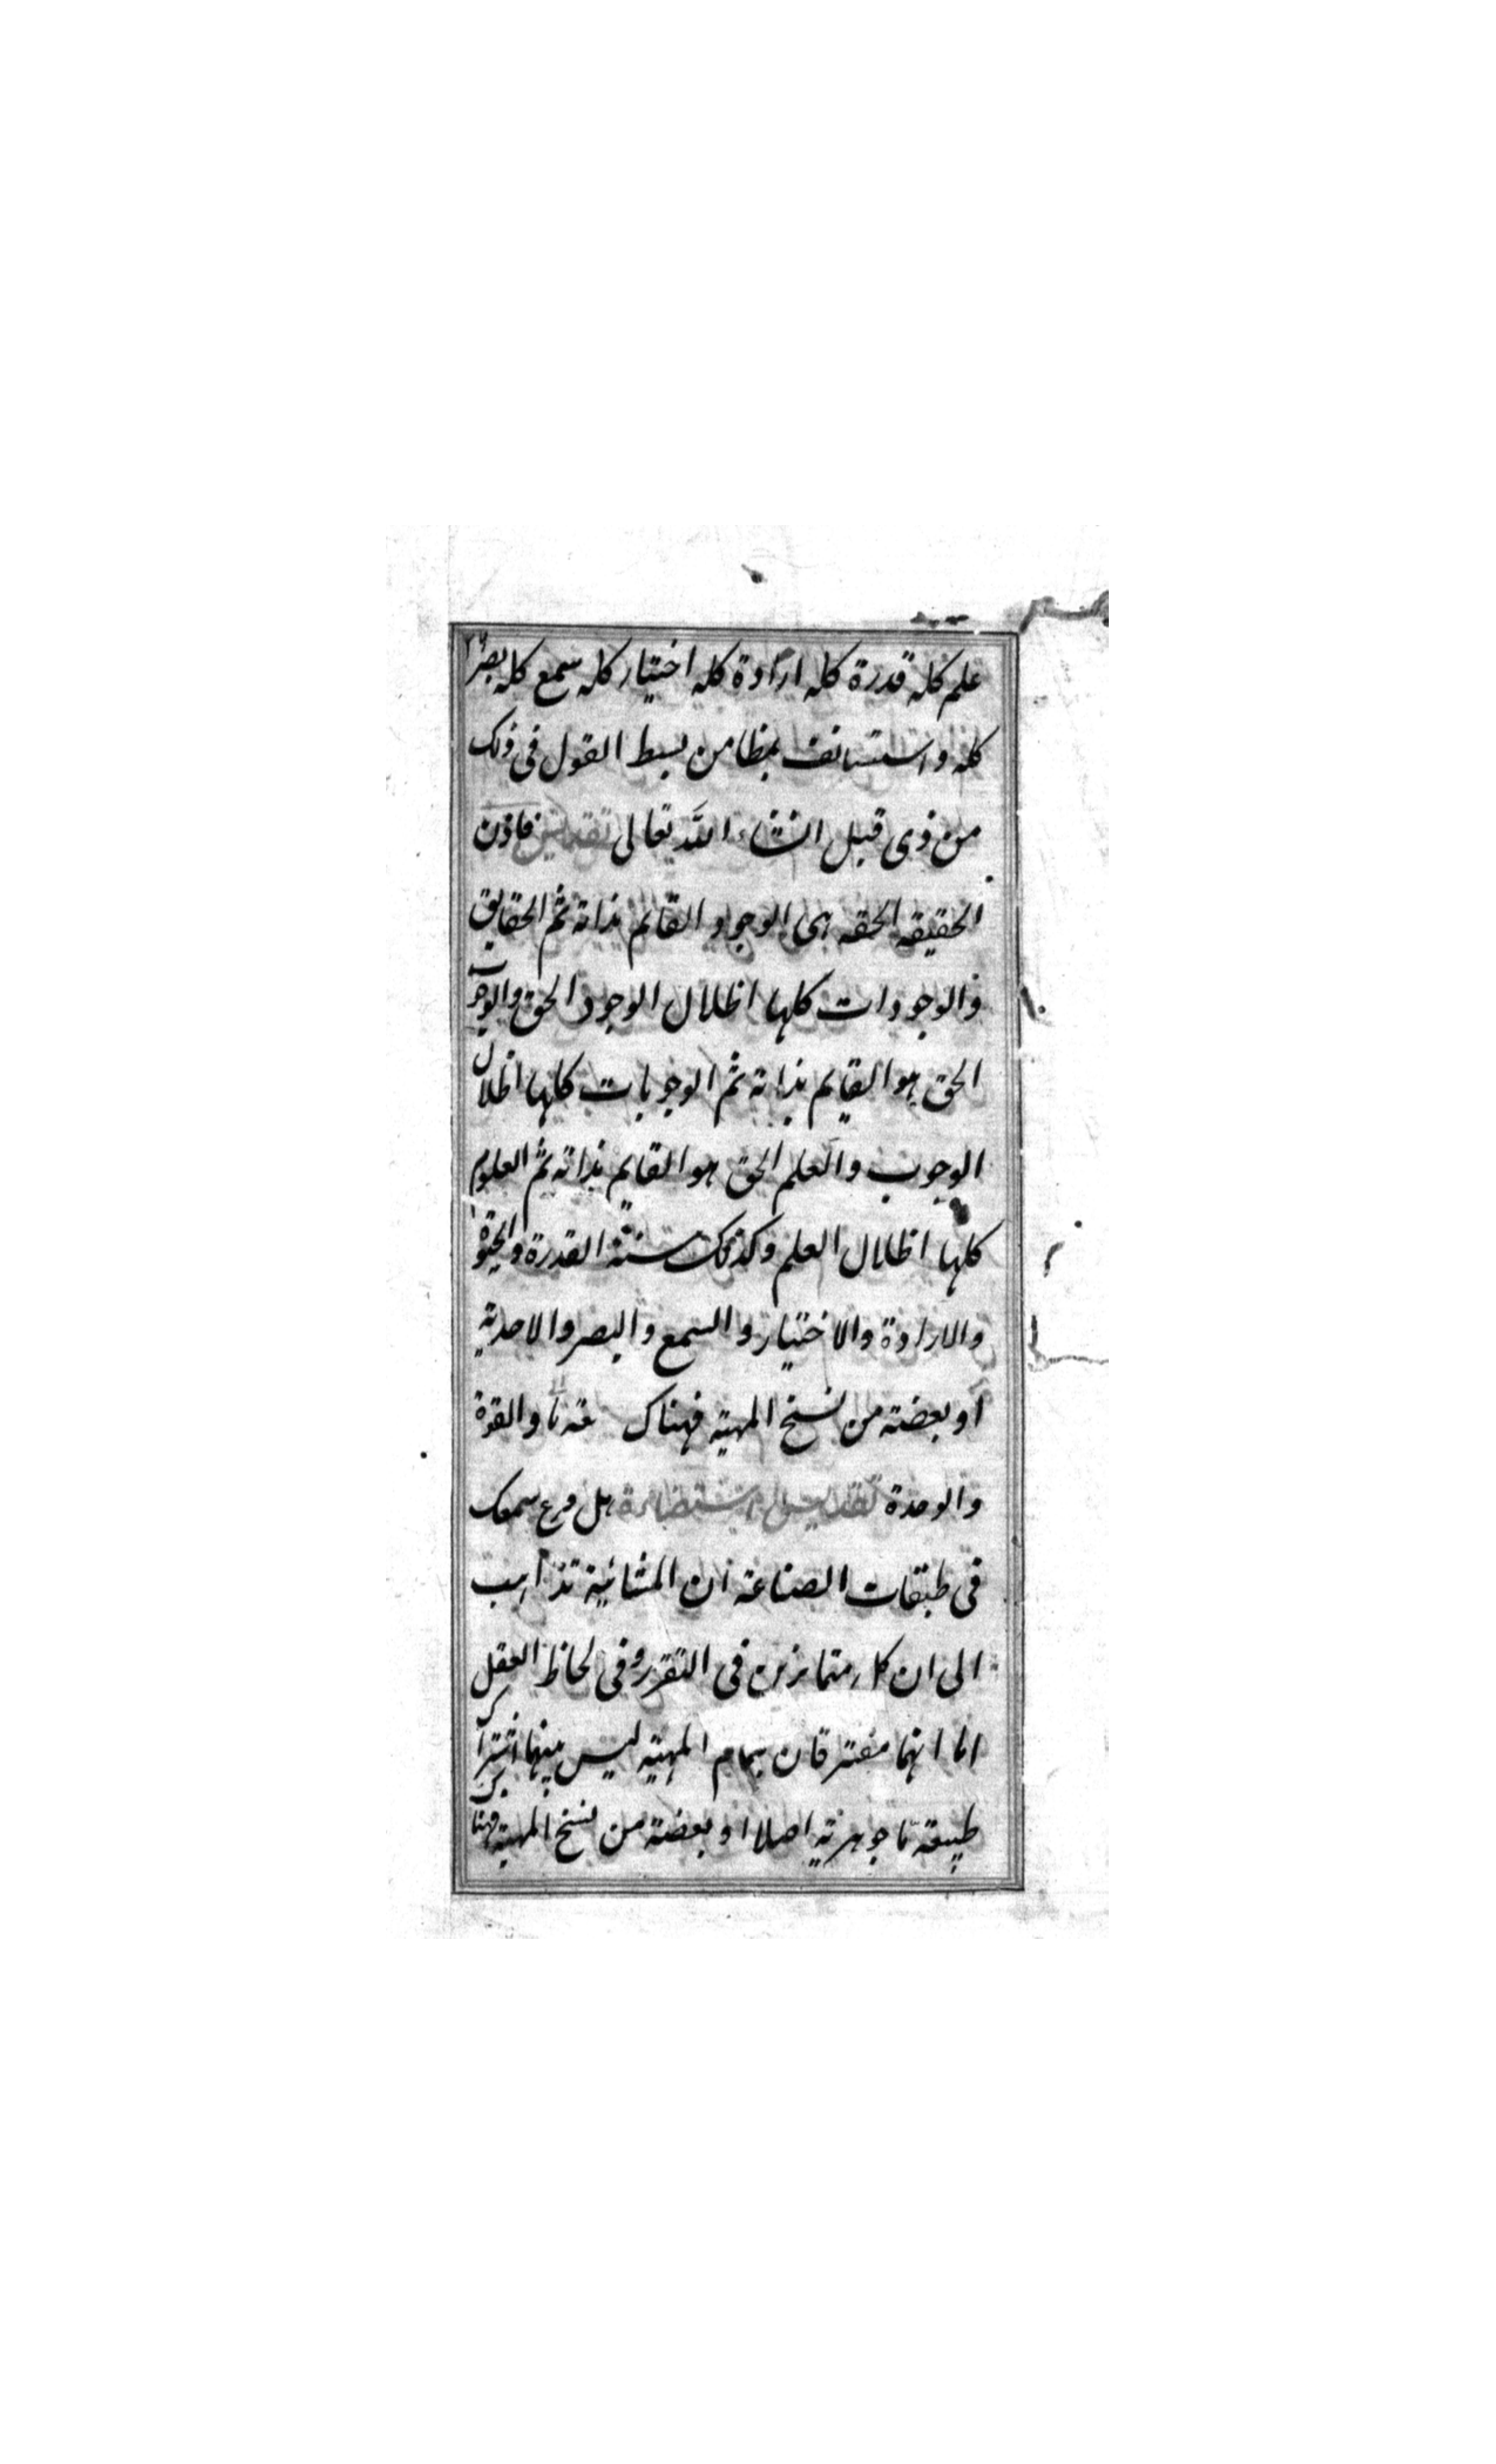 علم كله قدرة كله ارادة كله اختيار كله سمع كله بصر ٢٦
كله واستسانف بمظا من بسط القول فى ذلك
من ذى قبل انشاء الله تعالى تقديس فاذن
الحقيقه الحقه هى الوجود القائم بذاته ثم الحقايق
والوجودات كلها اظلال الوجود الحق والوجوب
الحق هو القايم بذاته ثم الوجوبات كلها اظلال
الوجوب والعلم الحق هو القايم بذاته ثم العلوم
كلها اظلال العلم وكذلك سنة القدرة والحيوة
والارادة والاختيار والسمع والبصر والاحدية
او بعضته من نسخ المهية فهناك والقوة
والوحدة تقديس هل قرع سمعك
فى طبقات الصناعة ان المشائية تذاهب
الى ان كل متمايزين فى التقرر وفى لحاظ العقل
اما انهما مفترقان بتمام المهية ليس بينهما اشتراك
طبيعة ما جوهرية اصلا او بعضته من نسخ المهية فهناك